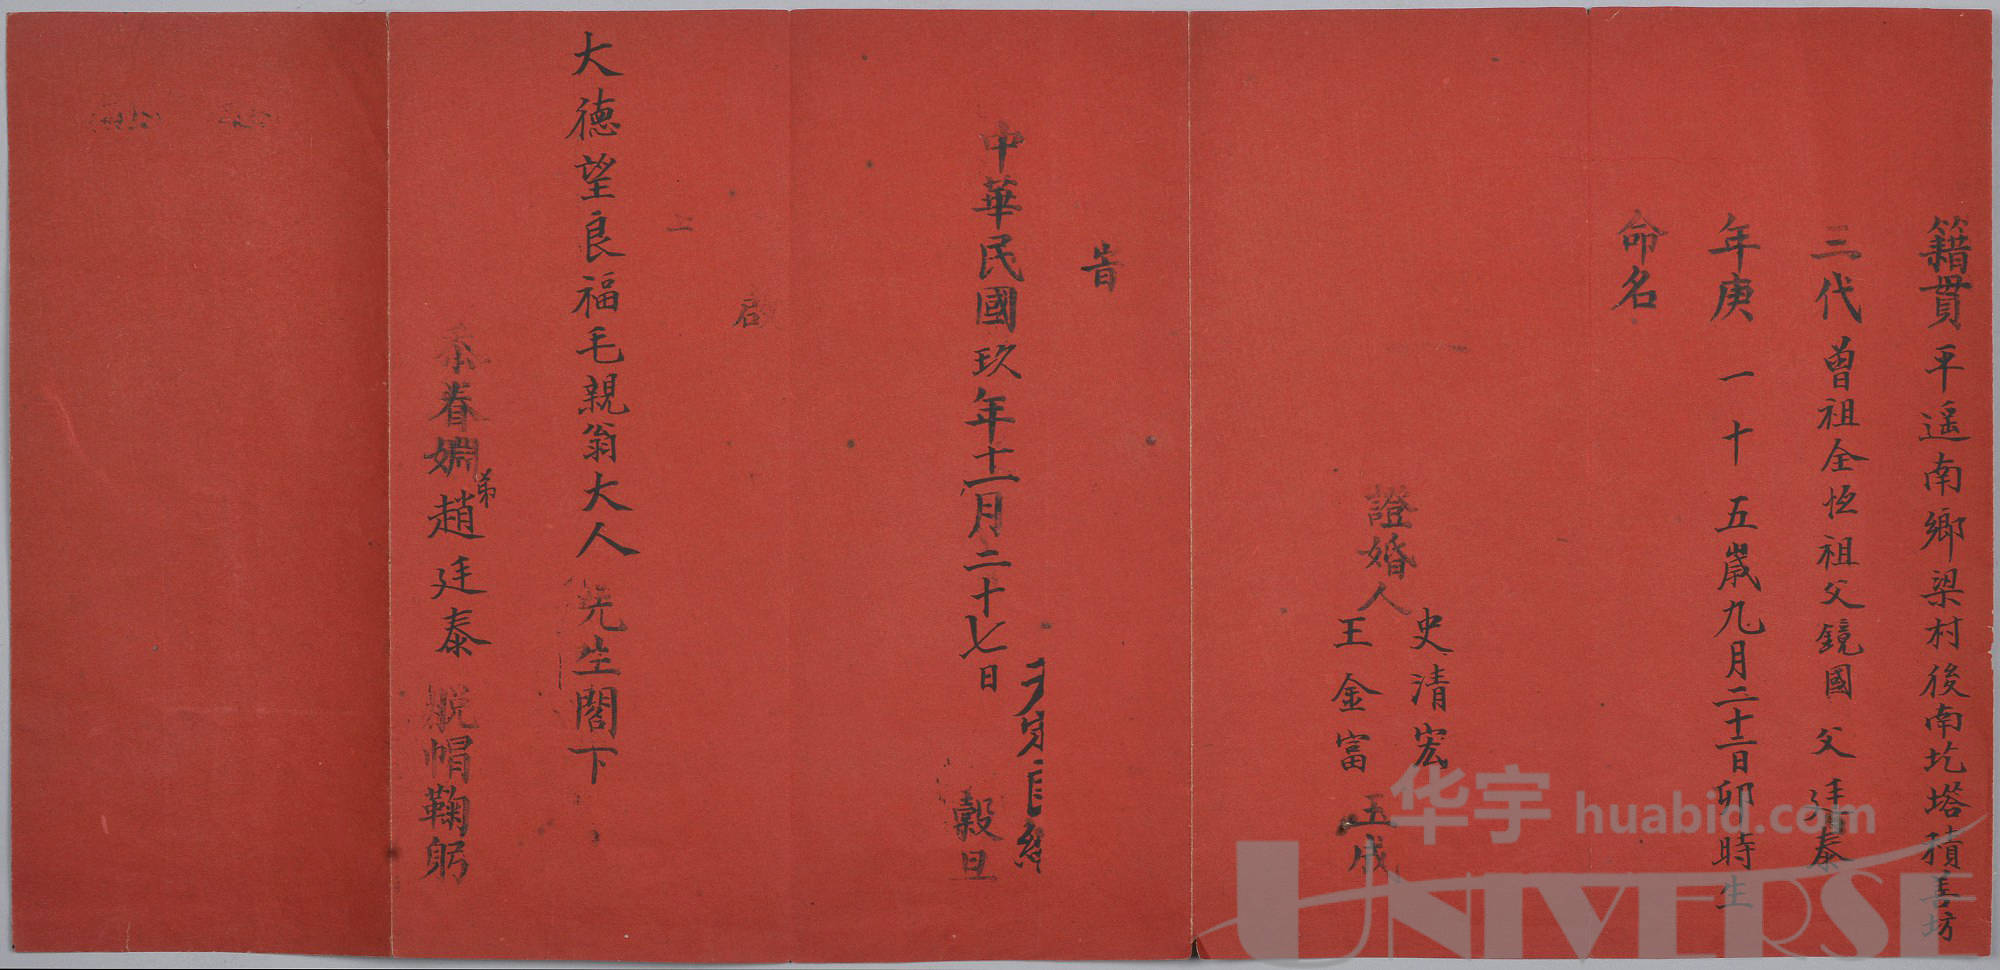 籍貫 平遥南鄉梁村後南圪塔積善坊
三代 曾祖全恆 祖父鏡國 父廷泰
年庚 一十五歲九月二十二日卯時生
命名
證婚人 史清宏 王金富 玉成
旹
中華民國玖年十一月二十七日 穀旦
啟
上
大德望良福毛親翁大人先生閣下
忝眷姻弟趙廷泰 脱帽鞠躬
华宇 huabid.com
UNIVERSE